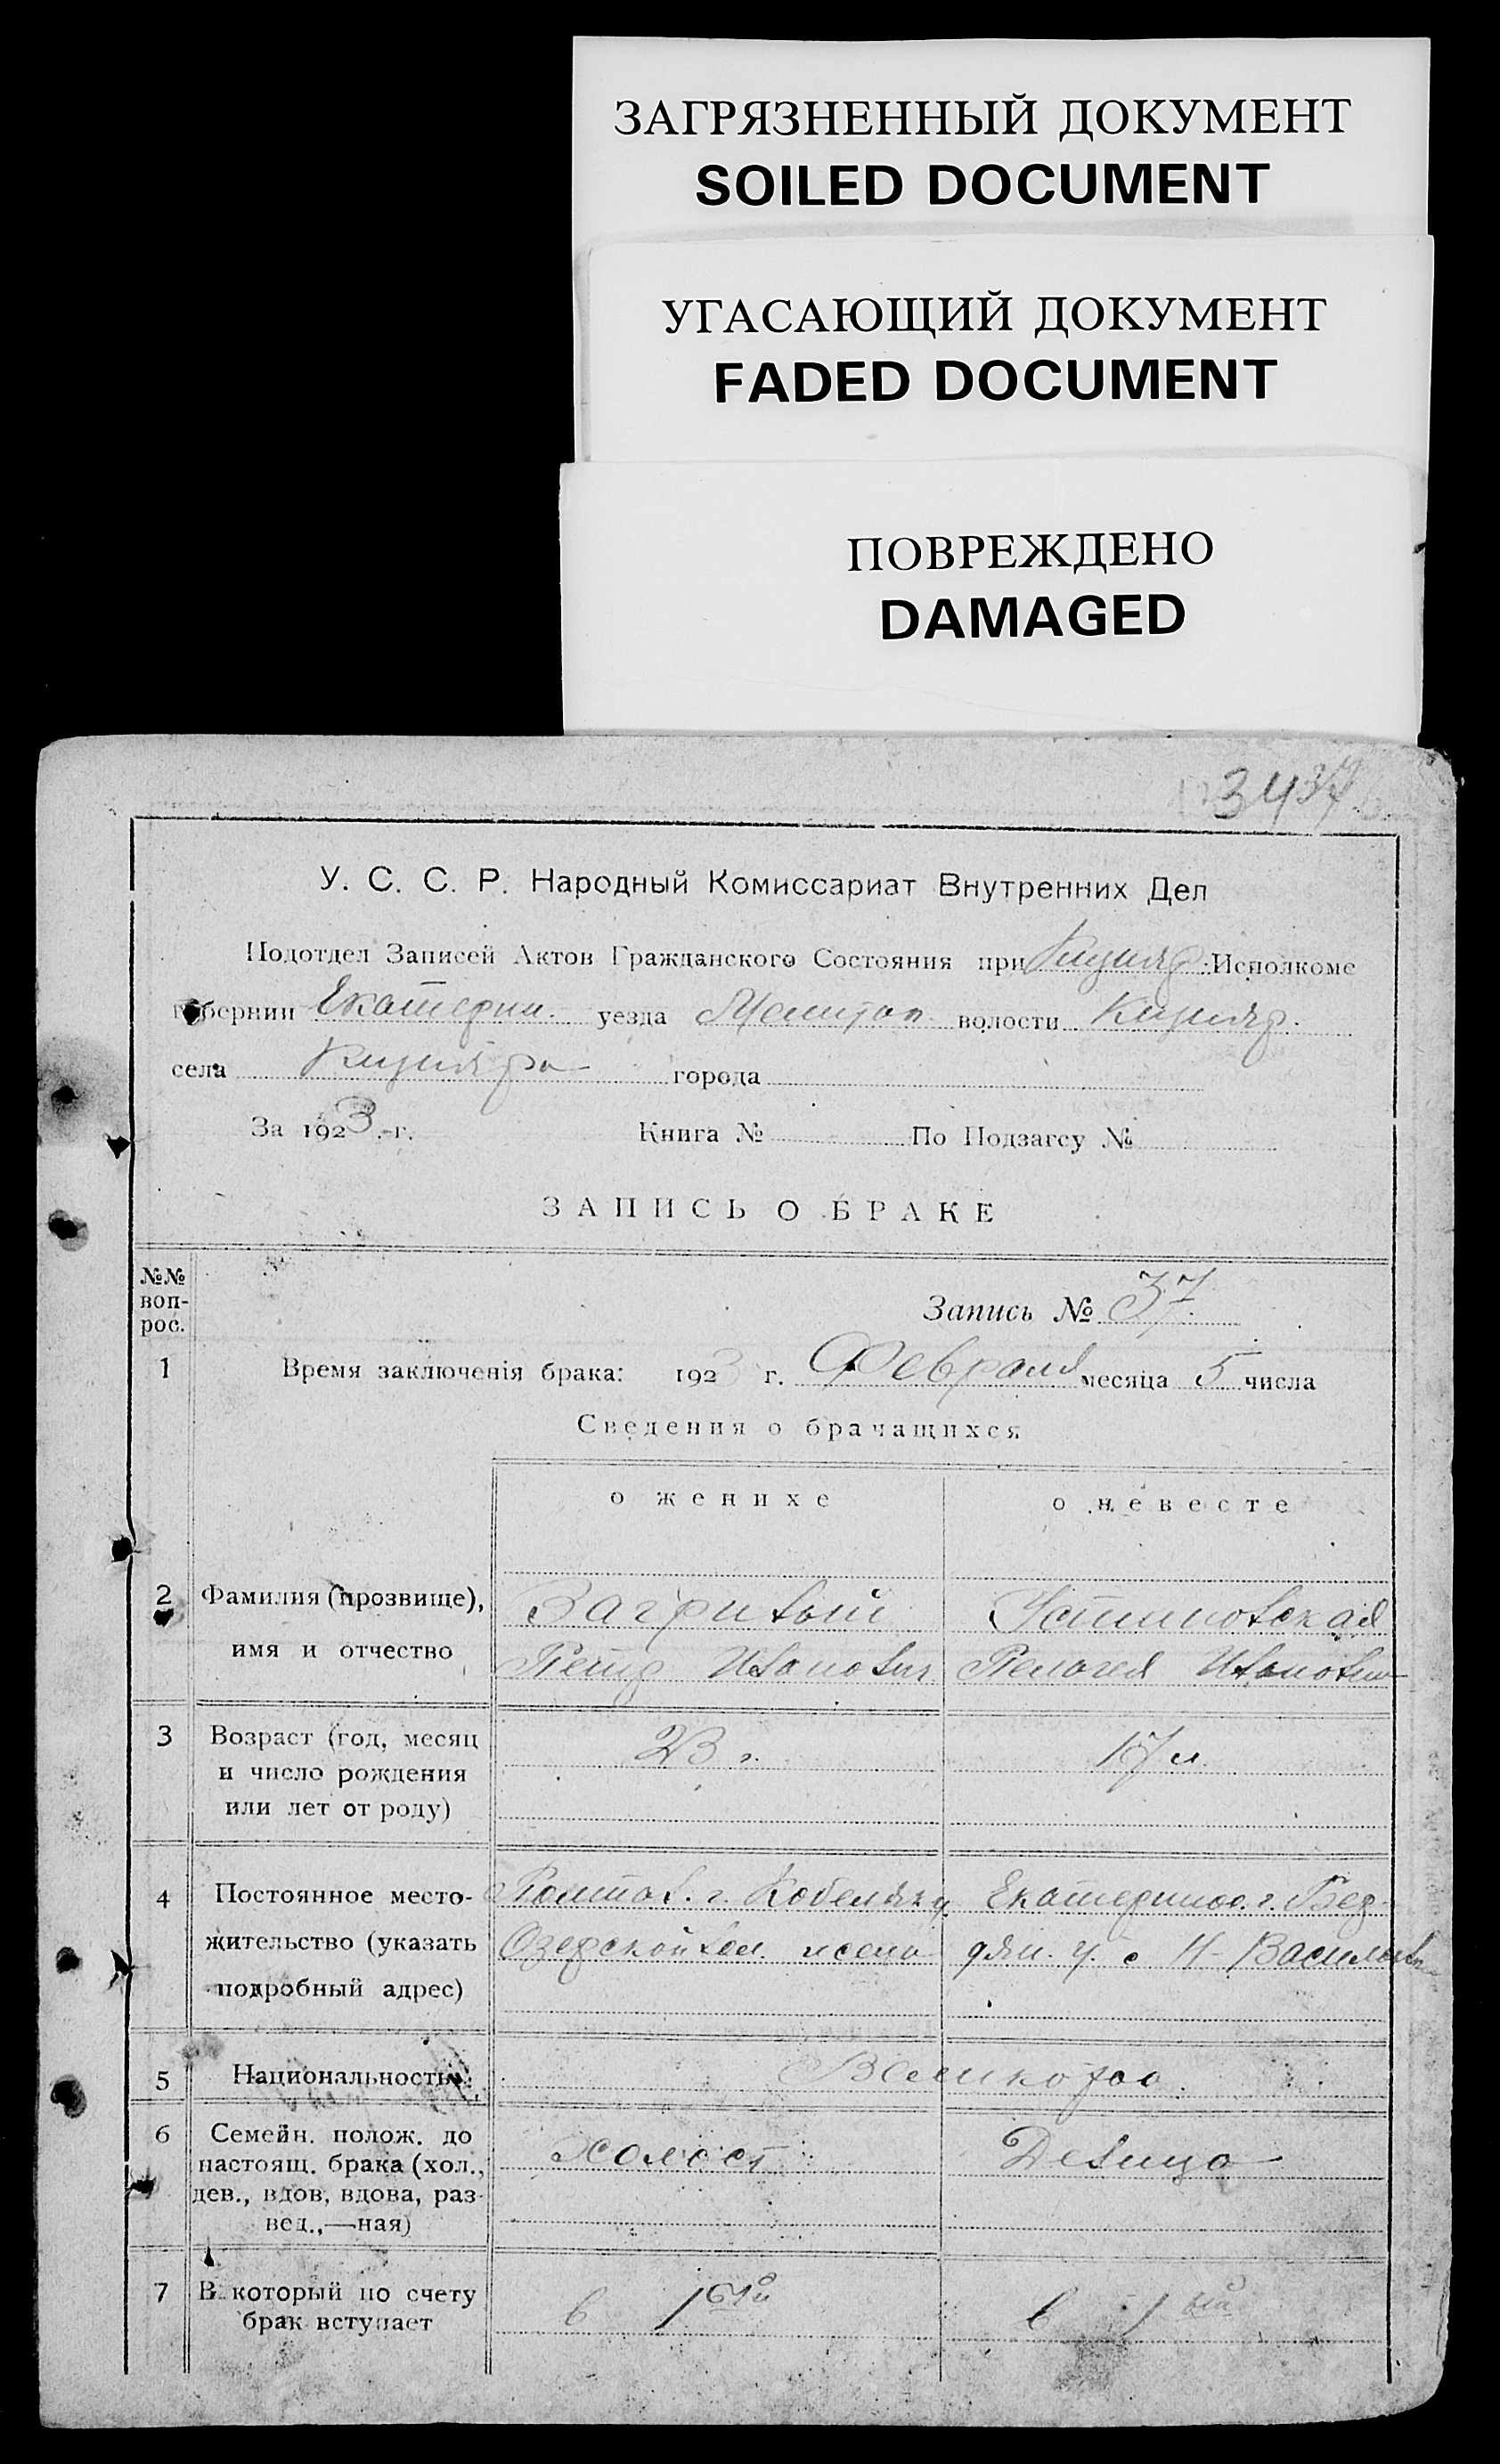 ЗАГРЯЗНЕННЫЙ ДОКУМЕНТ
SOILED DOCUMENT
УГАСАЮЩИЙ ДОКУМЕНТ
FADED DOCUMENT
ПОВРЕЖДЕНО
DAMAGED
34 37
У. С. С. Р. Народный Комиссариат Внутренних Дел
Подотдел Записей Актов Гражданского Состояния при Кизияр. Исполкоме
губернии Екатерин. уезда Мелитоп. волости Кизияр.
села Кизияра города
За 1923 г. Книга № По Подзагсу №
ЗАПИСЬ О БРАКЕ
№№ вопрос.
Запись № 37
1 Время заключенія брака: 1923 г. Февраля месяца 5 числа
Сведения о брачащихся
о женихе о невесте
2 Фамилия (прозвище), Загривый Устиновская
имя и отчество Петр Иванович Пелагея Ивановна
3 Возраст (год, месяц 23 г. 17 л.
и число рождения
или лет от роду)
4 Постоянное место- Полтав. г. Кобеляк у. Екатеринос. г. Бер-
жительство (указать Озерской вол. дян. у. с Н-Васильевк
подробный адрес)
5 Национальность Великорос.
6 Семейн. полож. до Холост Девица
настоящ. брака (хол.,
дев., вдов, вдова, раз-
вед.,—ная)
7 В который по счету в 1ый в 1ый
брак вступает